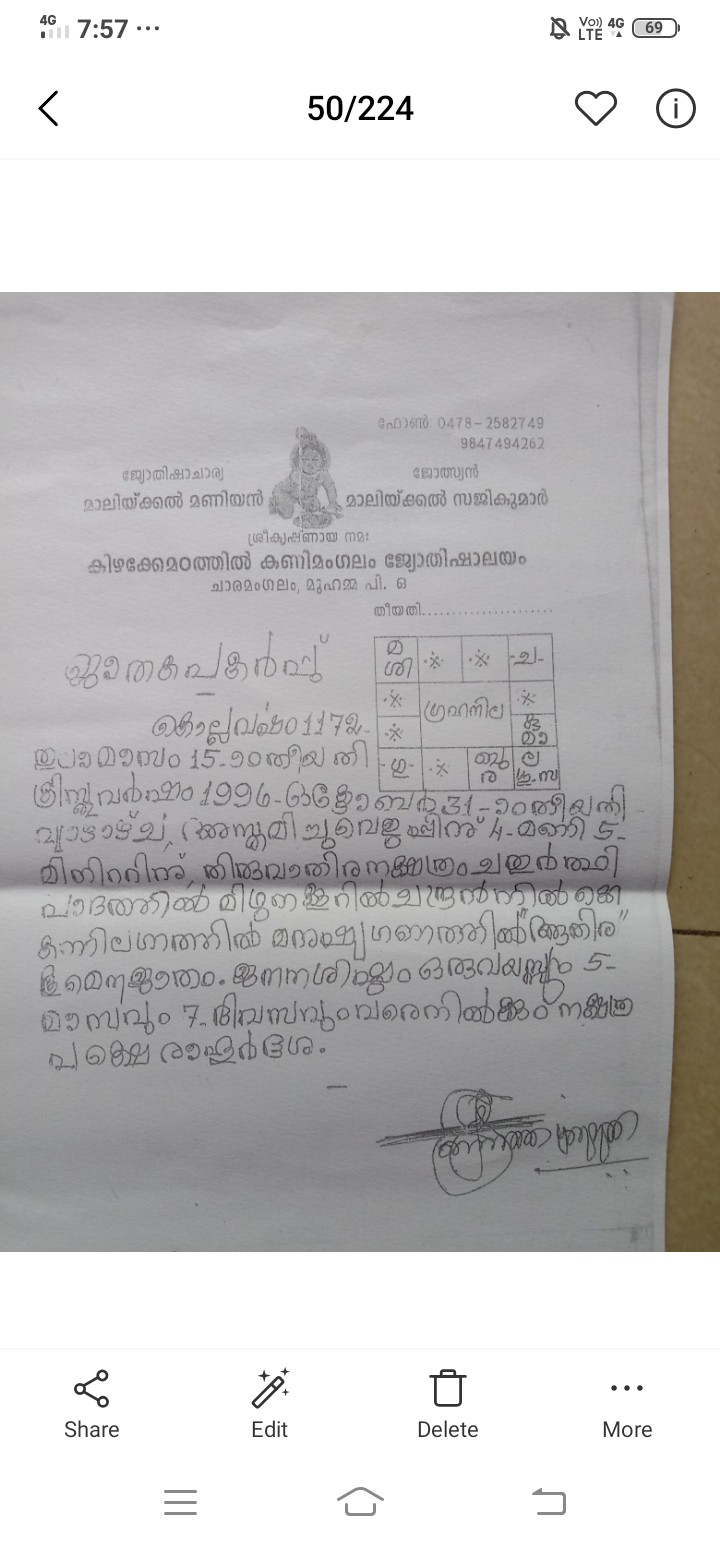 4G 7:57 ... Vo)) LTE 4G 69
50/224
ഫോൺ: 0478-2582749
9847494262
ജ്യോതിഷാചാര്യ ജോത്സ്യൻ
മാലിയ്ക്കൽ മണിയൻ മാലിയ്ക്കൽ സജികുമാർ
ശ്രീകൃഷ്ണായ നമഃ
കിഴക്കേമഠത്തിൽ കണിമംഗലം ജ്യോതിഷാലയം
ചാരമംഗലം, മുഹമ്മ പി. ഒ
തീയതി..............................
ജാതകപകർപ്പ്
മ ശി ച
ഗ്രഹനില
കു മാ
ഗു ബു ര ല ശു.സ
കൊല്ലവർഷം 1172-
തുലാമാസം 15-ാംതീയതി
ക്രിസ്തുവർഷം 1996-ഒക്ടോബർ 31-ാംതീയതി
വ്യാഴാഴ്ച, അസ്തമിച്ചുവെളുപ്പിന് 4-മണി 5-
മിനിററിന്, തിരുവാതിരനക്ഷത്രം ചതുർത്ഥി
പാദത്തിൽ മിഥുനക്കൂറിൽ ചന്ദ്രൻ നിൽക്കെ
കന്നിലഗ്നത്തിൽ മനുഷ്യഗണത്തിൽ
ജനനശിഷ്ടം ഒരുവയസ്സും 5-
മാസവും 7-ദിവസവും വരെനിൽക്കും നക്ഷത്ര
പക്ഷെ രാഹുർദശ.
Share Edit Delete More